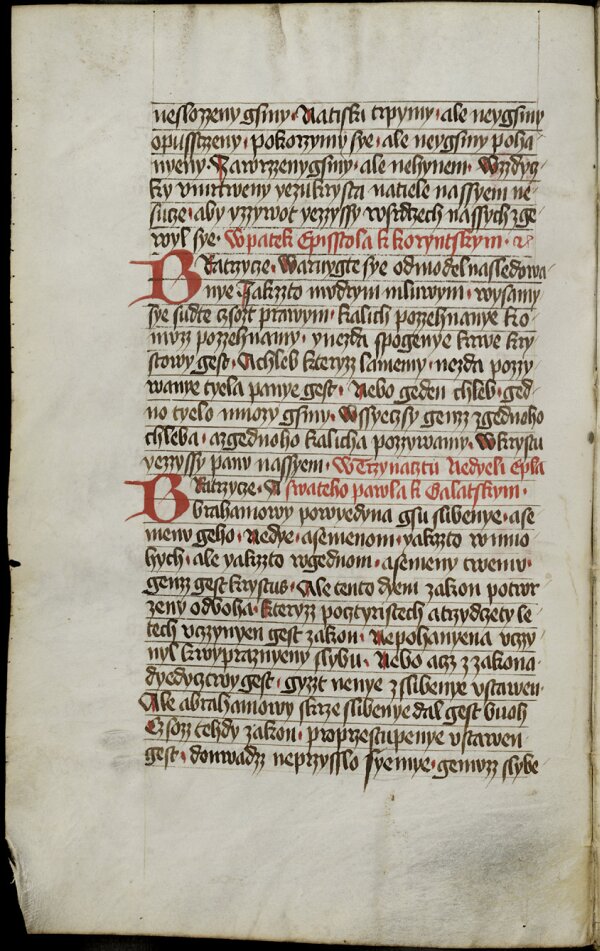 neslozzeny gsmy · Natisku trpymy · ale neygsmy
opusstzeny · pokorzymy sye · ale neygsmy poha-
nyeny · Zaworzzenygsmy · ale nehynem · Wzdycz-
ky vmrtweny yezukrysta natiele nassyem ne-
sucze · aby yzzywot yezzyssy wsrdzech nassych zge-
wyl sye · W patek Episstola k koryntskym · &
Bratrzycze · Warugte sye odmodel nasledowa-
nye · Jakzto mudrym mluwym · wysamy
sye sudte czsozt prawym · kalich pozzehnanye ko-
muzz pozzehnamy · ynezda spogenye krwe kry-
stowy gest · Achleb kteryzz lamemy · nezda pozzy-
wanye tyela panye gest · Nebo geden chleb · ged-
no tyelo mnozy gsmy · Wssyeczsy genzz zgednoho
chleba · azgednoho kalicha pozzywamy · Wkrystu
yezzyssy panu nassyem · W Trzynacztu Nedyeli Epla
Bratrzycze · A swateho pawla k Galatskym ·
brahamowy powyedyna gsu slibenye · ase-
menu geho · Nedye · asemenom · yakzto w mno-
hych · ale yakzto wgednom · asemeny twemu ·
genzz gest krystus · Ale tento dyem zakon potwr-
zeny odboha · kteryzz pocztyristech atrzydczety le-
tech vczynyen gest zakon · Nepohanyena vczy-
nyl kwypraznyeny slybu · Nebo acz z zakona
dyedycztwy gest · gyzzt nenye z slibenye vstawen ·
Ale abrahamowy skrze slibenye dal gest buoh
Czsozz tehdy zakon · pro przestupenye vstawen
gest · donwadzz neprzysslo syemye · gemuzz slybe-